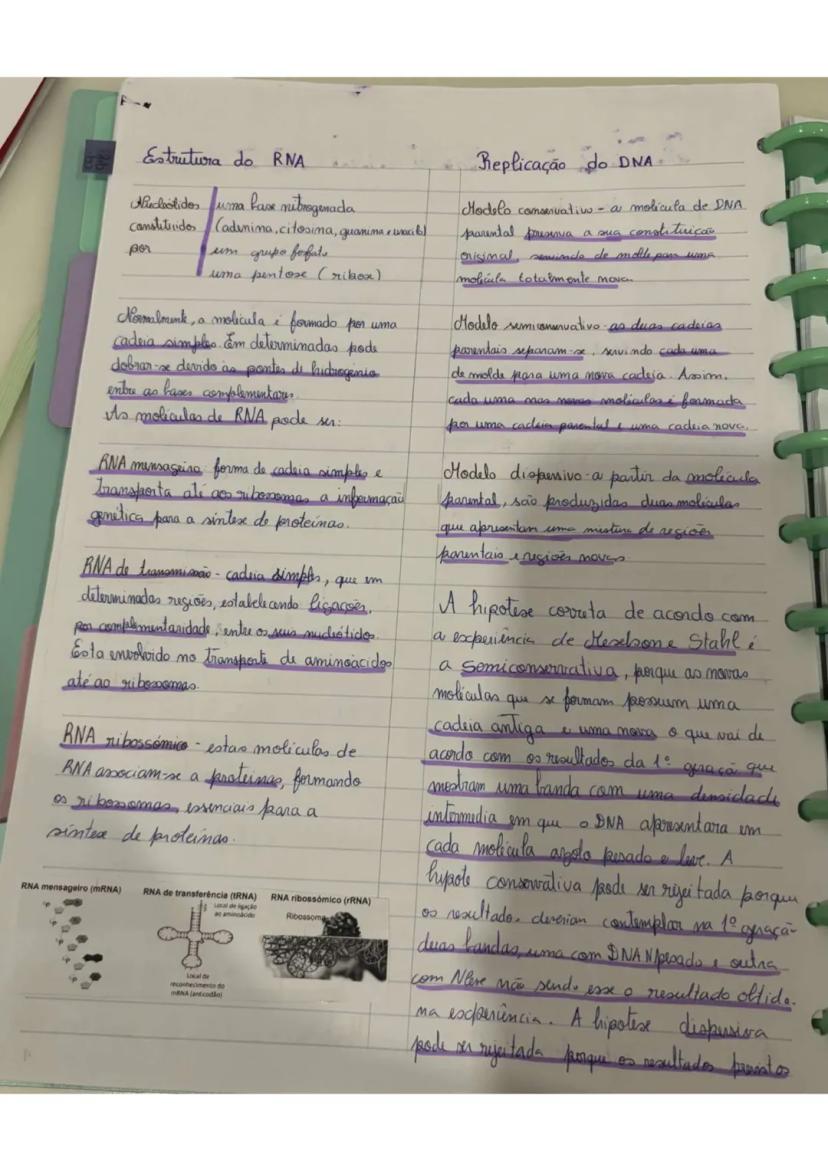 Estrutura do RNA
Nucleótidos
constituidos
por
uma base nitrogenada
(adenina, citosina, guanina e uracilo)
um grupo fosfato
uma pentose (ribose)
Normalmente, a molécula é formado por uma
cadeia simples. Em determinadas pode
dobrar-se devido às pontes de hidrogénio
entre as bases complementares.
As moléculas de RNA pode ser:
RNA mensageiro forma de cadeia simples e
transporta até aos ribossomas a informação
genética para a síntese de proteínas.
RNA de transmissão - cadeia simples, que em
determinadas regiões, estabelecendo ligações,
por complementaridade, entre os seus nucleótidos.
Esta envolvido no transporte de aminoácidos
até ao ribossomas.
RNA ribossómico - estas moléculas de
RNA associam-se a proteínas, formando
os ribossomas, essenciais para a
síntese de proteínas.
RNA mensageiro (mRNA)
RNA de transferência (tRNA)
Local de ligação
ao aminoácido
Local de
reconhecimento do
mRNA (anticodão)
RNA ribossómico (rRNA)
Ribossoma
Replicação do DNA
Modelo conservativo - a molécula de DNA
parental preserva a sua constituição
original, servindo de molde para uma
molécula totalmente nova.
Modelo semiconservativo - as duas cadeias
parentais separam-se, servindo cada uma
de molde para uma nova cadeia. Assim,
cada uma nas novas moléculas é formada
por uma cadeia parental e uma cadeia nova.
Modelo dispersivo - a partir da molécula
parental, são produzidas duas moléculas
que apresentam uma mistura de regiões
parentais e regiões novas
A hipotese correta de acordo com
a experiência de Meselson e Stahl é
a semiconservativa, porque as novas
moléculas que se formam possuem uma
cadeia antiga e uma nova o que vai de
acordo com os resultados da 1º geração que
mostram uma banda com uma densidade
intermedia em que o DNA apresentara em
cada molécula azoto pesado e leve. A
hipote conservativa pode ser rejeitada porque
os resultados deveriam contemplar na 1º geração
duas bandas, uma com DNA N pesado e outra
com N leve não sendo esse o resultado obtido.
na experiência. A hipotese dispersiva
pode ser rejeitada porque os resultados previstos